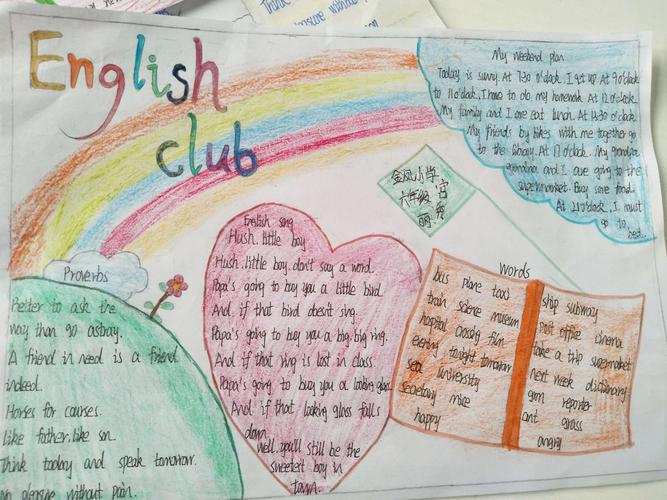 English
club
My weekend plan
Today is sunny. At 7:30 o'clock. I get up. At 9 o'clock
to 11 o'clock. I have to do my homework. At 12 o'clock.
My family and I are eat lunch. At 14:30 o'clock.
My friends by bikes with me together go
to the library. At 17 o'clock. My grandpa,
grandma and I are going to the
supermarket. Buy some food.
At 21 o'clock, I must
go to
bed.
金凤小学
六年级
宫
丽
Proverbs
Better to ask the
way than go astray.
A friend in need is a friend
indeed.
Horses for courses.
Like father, like son.
Think today and speak tomorrow.
No pleasure without pain.
English song
Hush. little boy
Hush. little boy. don't say a word.
Papa's going to buy you a little bird.
And. if that bird doesn't sing.
Papa's going to buy you a big. big ring.
And if that ring is lost in class.
Papa's going to buy you a looking glass
And. if that looking glass falls
down.
well. you'll still be the
sweetest boy in
town.
Words
bus plane taxi
train science museum
hospital crossing film
evening tonight tomorrow
sea university
secretary mice
happy
ship subway
post office cinema
take a trip supermarket
next week dictionary
gym reporter
ant grass
angry